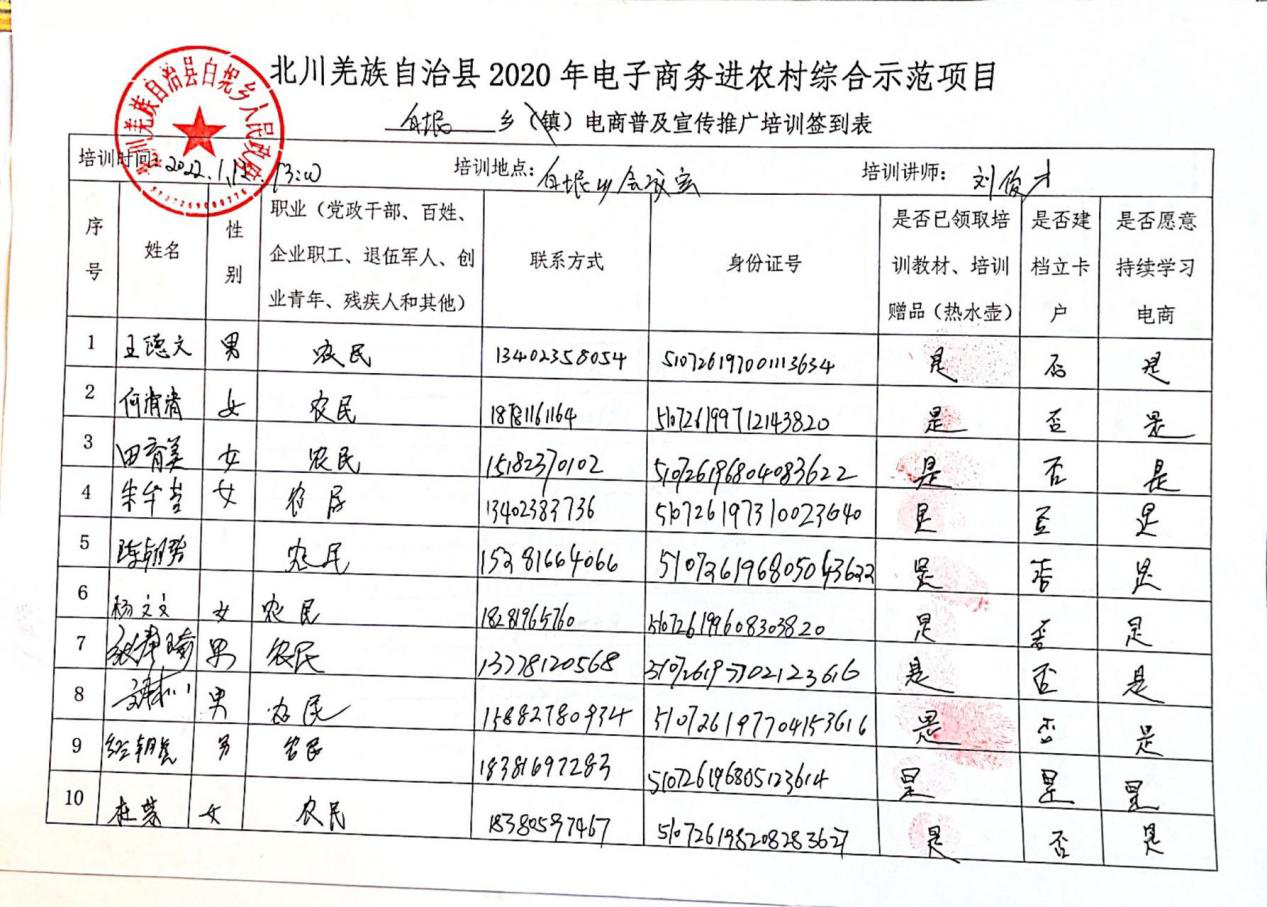 北川羌族自治县 2020 年电子商务进农村综合示范项目
白坭 乡（镇）电商普及宣传推广培训签到表
北川羌族自治县白坭乡人民政府
培训时间: 2022.1.12. 13:00 培训地点: 白坭乡会议室 培训讲师: 刘俊才
序号 姓名 性别 职业（党政干部、百姓、企业职工、退伍军人、创业青年、残疾人和其他） 联系方式 身份证号 是否已领取培训教材、培训赠品（热水壶） 是否建档立卡户 是否愿意持续学习电商
1 王德文 男 农民 13402358054 510726197001113634 是 否 是
2 女 农民 18781161164 510726199712143820 是 否 是
3 田育美 女 农民 15182370102 510726196804083622 是 否 是
4 女 农民 13402383736 510726197310023640 是 否 是
5 农民 15281664066 510726196805043622 是 否 是
6 杨文文 女 农民 18281965760 510726199608303820 是 否 是
7 男 农民 13778120568 510726195702123616 是 否 是
8 男 农民 15882780934 510726197704153616 是 否 是
9 男 农民 18381697283 510726196805123614 是 是 是
10 杜蓉 女 农民 18380597467 510726198208283627 是 否 是